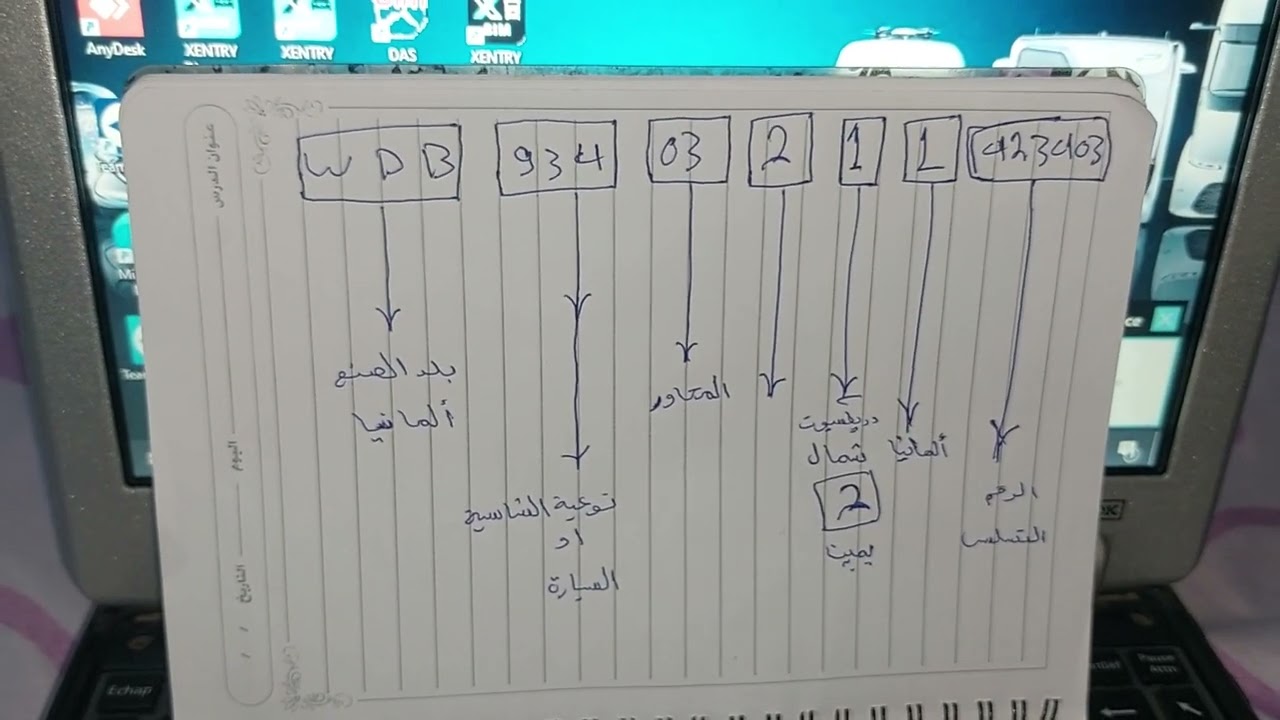 AnyDesk
XENTRY
XENTRY
DAS
XENTRY
عنوان الدرس
اليوم
التاريخ
WDB 934 03 2 1 L 423403
بلد الصنع
ألمانيا
نوعية الشاسيه
او
السيارة
المحاور
دريكسيوت
شمال
2
يمين
ألمانيا
الرقم
التسلس
OK
Echap
Pause
Attn